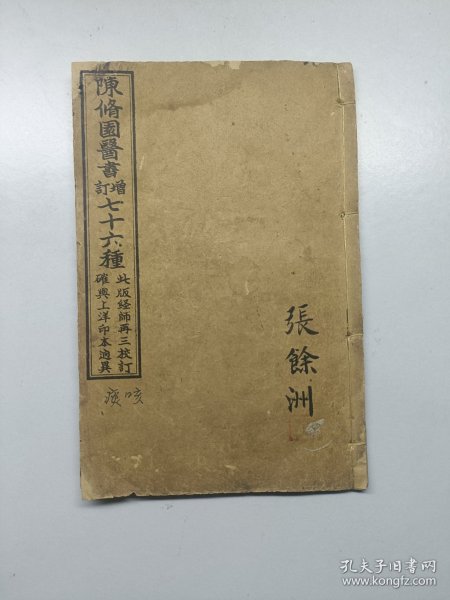 陳脩園醫書
增訂
七十六種
此版經師再三挍訂
確與上洋印本逈異
痰咳
張餘洲
孔夫子旧书网
www.kongfz.com